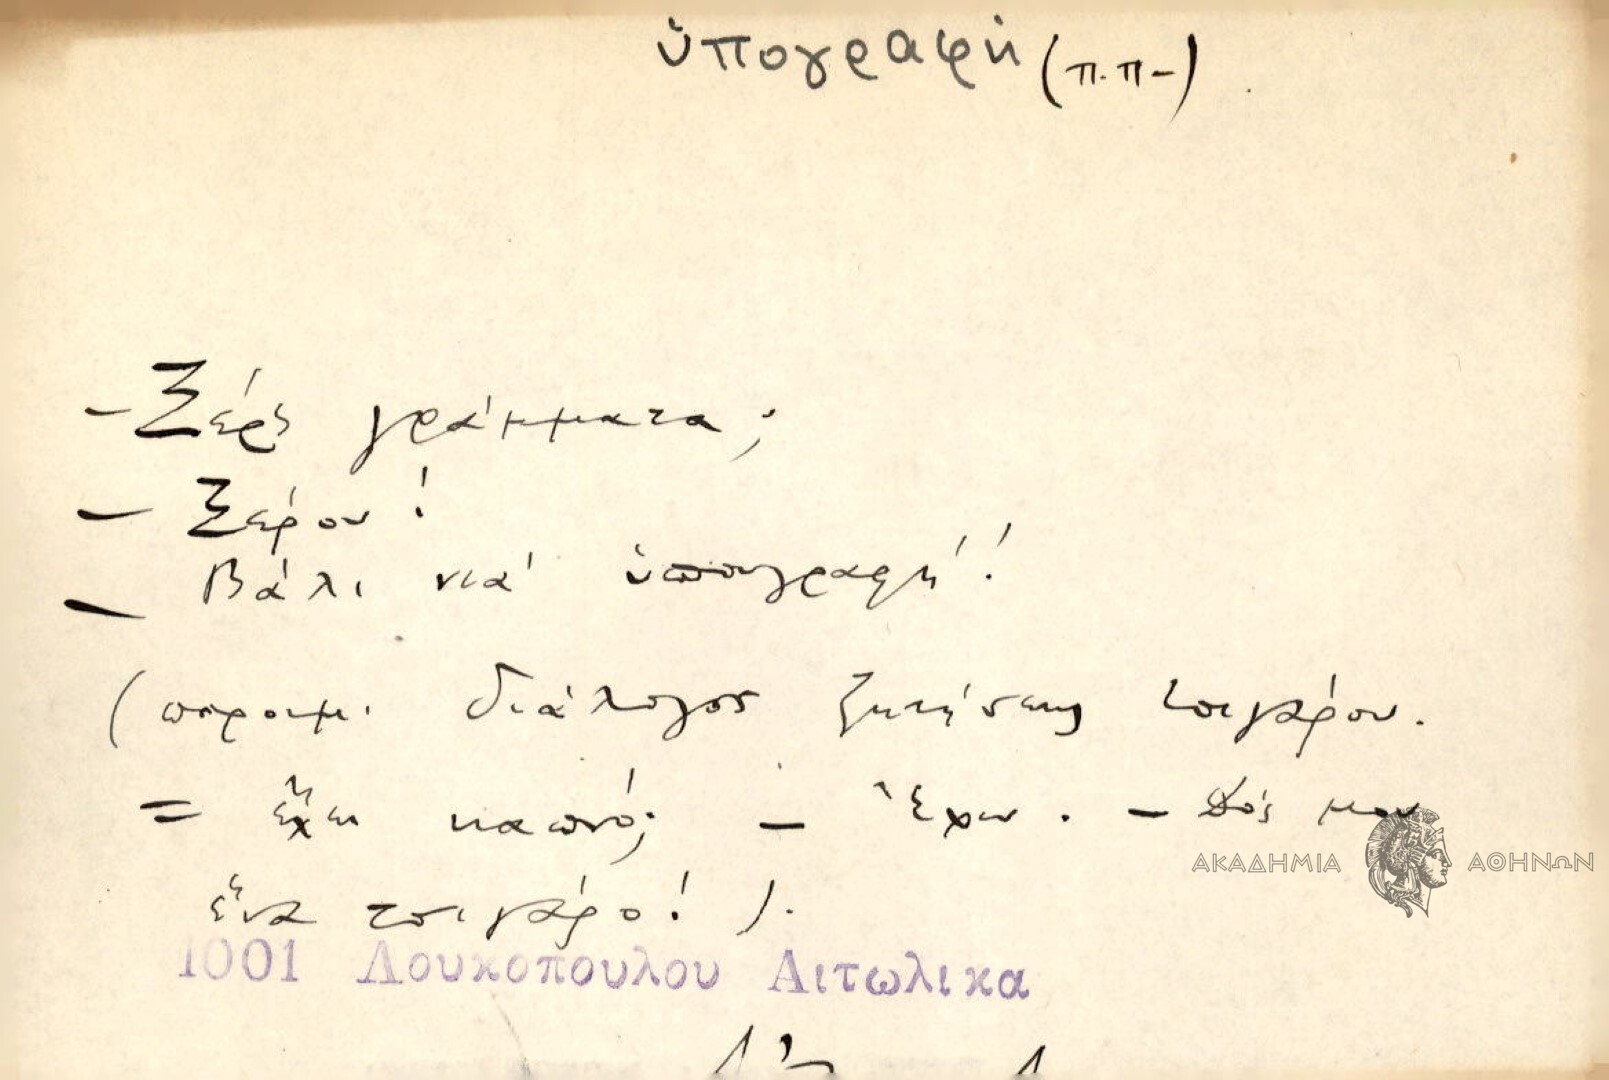 ὑπογραφὴ (π.π-)
- Ξέρς γράμματα;
- Ξέρου!
- Βάλι νιὰ ὑπουγραφή!
(παροιμ. διάλογος ζητήσεως τσιγάρου.
= ἔχει καπνό; - Ἔχω. - Δός μου
ἕνα τσιγάρο!).
ΑΚΑΔΗΜΙΑ ΑΘΗΝΩΝ
1001 Λουκοπουλου Αιτωλικα